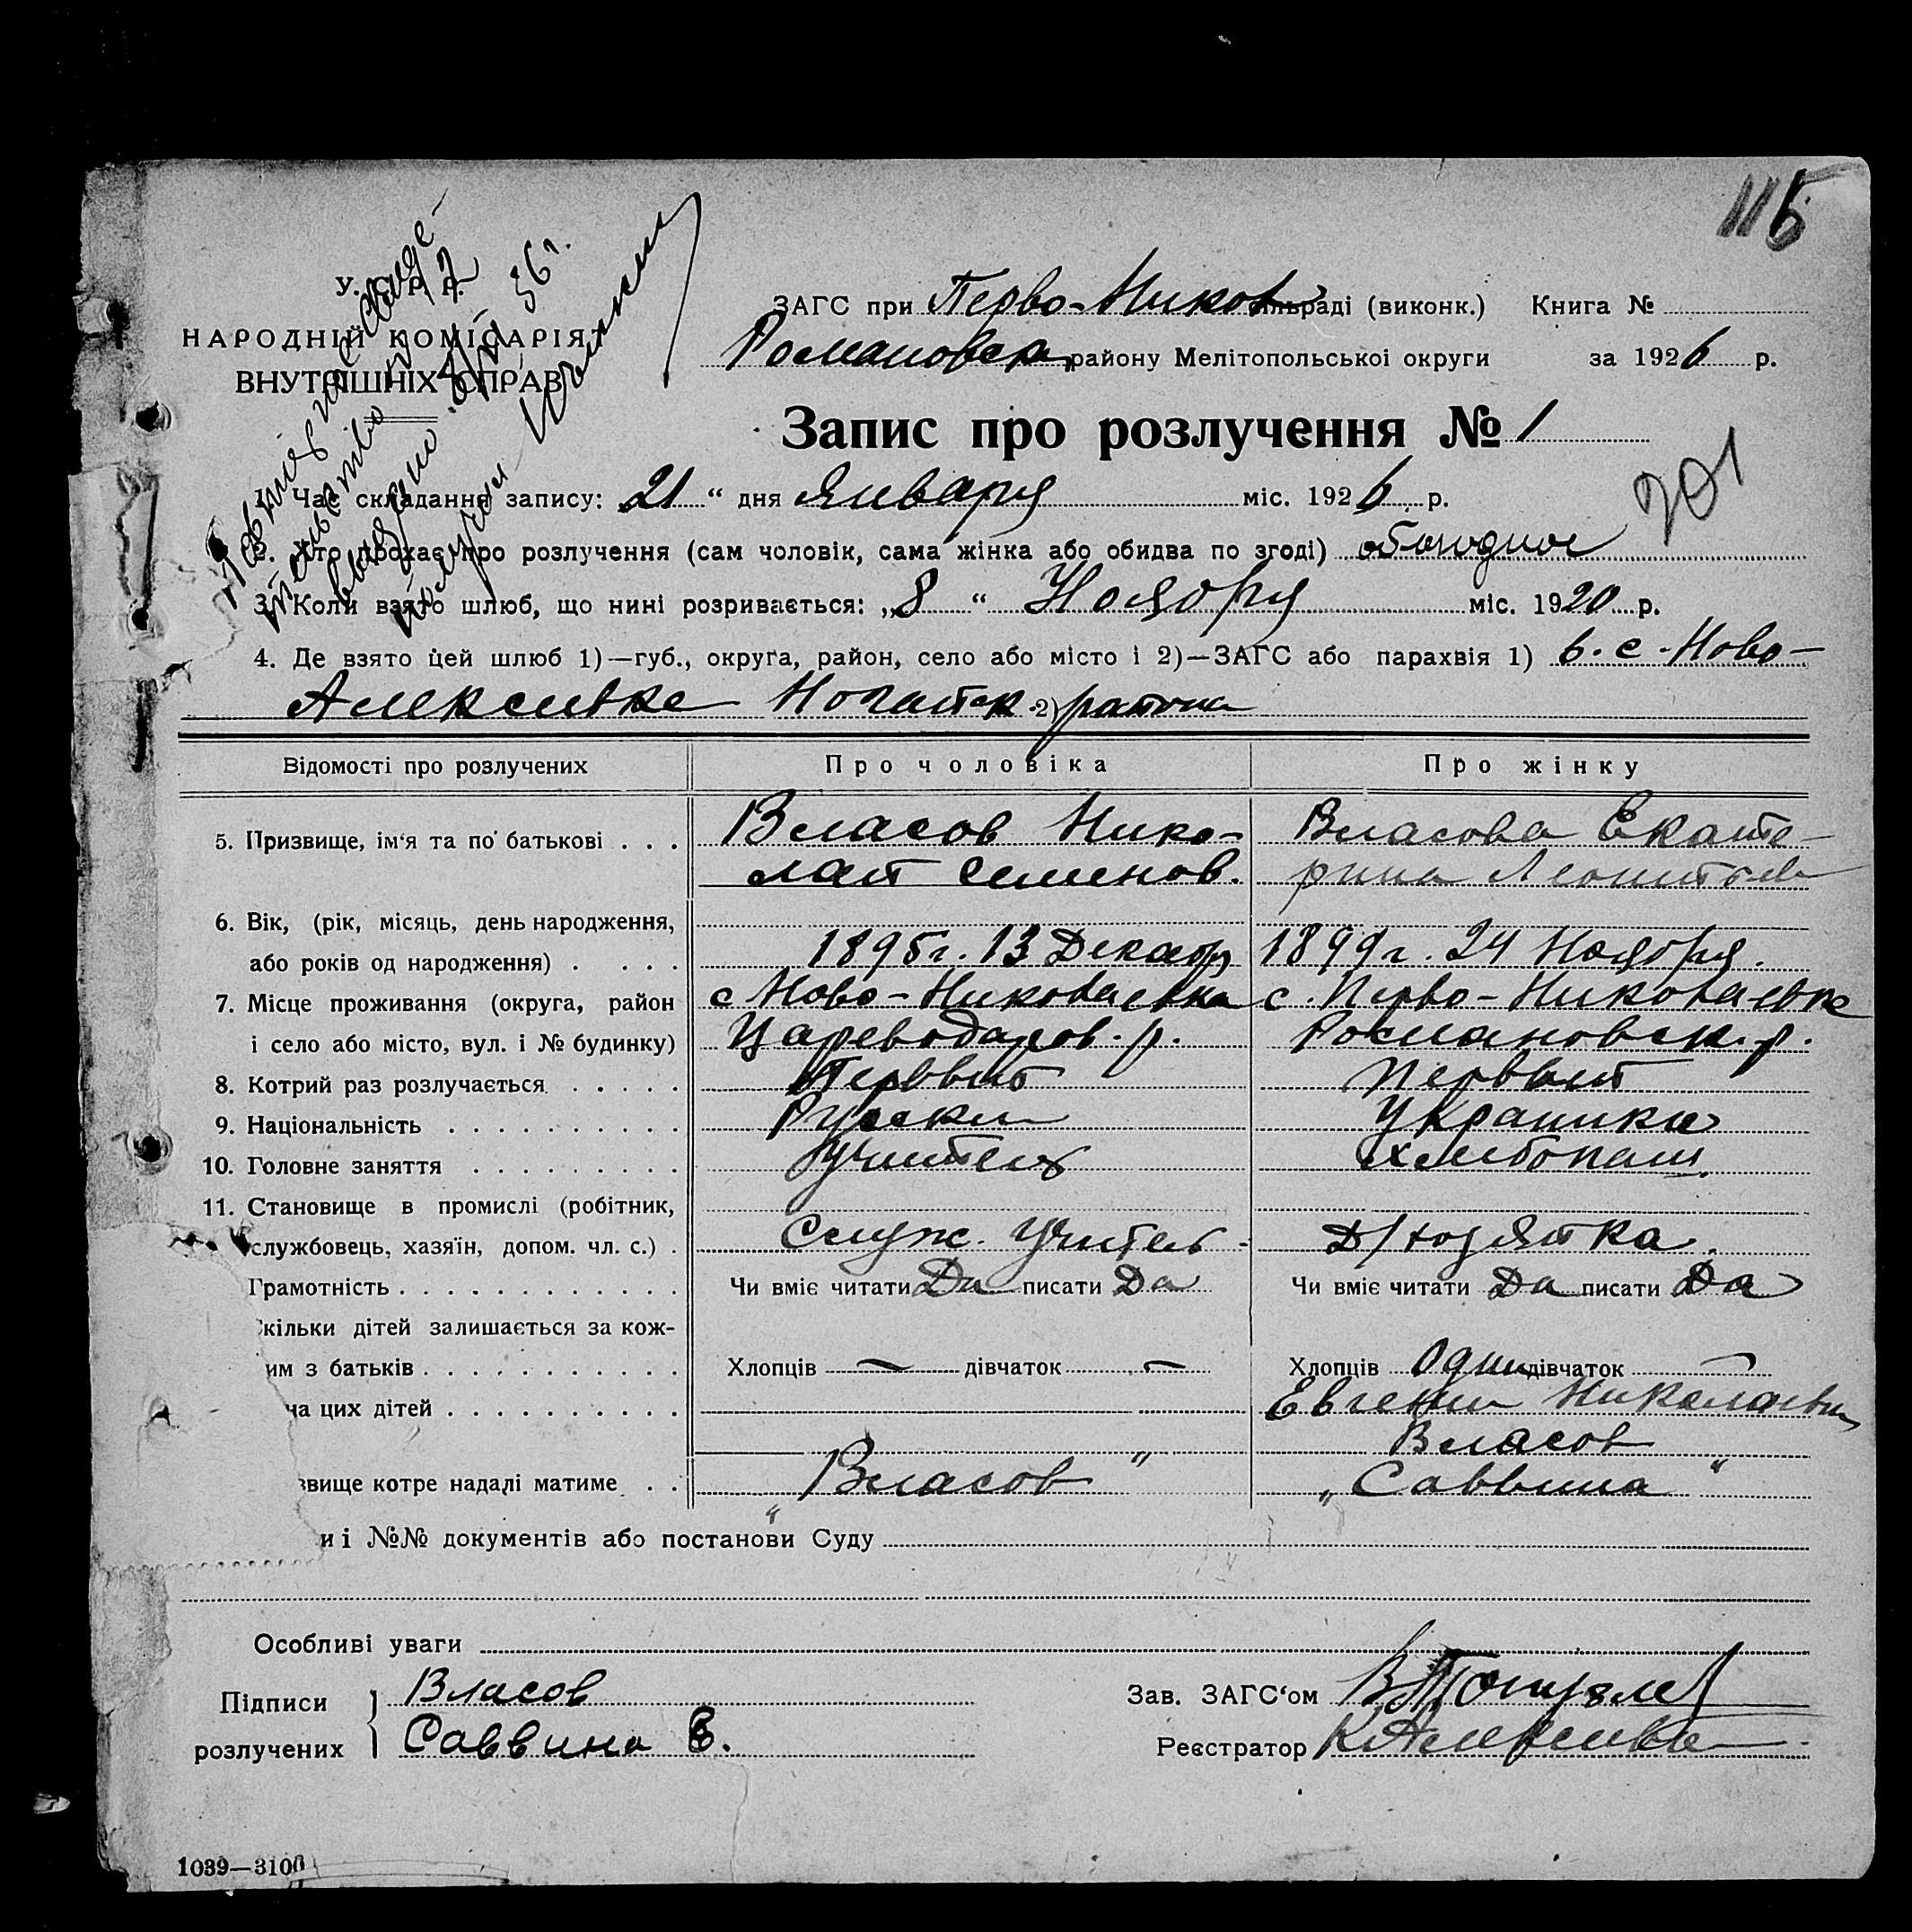 115
У. С. Р. Р.
НАРОДНІЙ КОМІСАРІЯ
ВНУТРІШНІХ СПРАВ
Повторное свиде-
тельство
выдано 36 г.
получил
ЗАГС при Перво-Никол сільраді (виконк.) Книга №
Романовск району Мелітопольської округи за 1926 р.
Запис про розлучення № 1
201
1. Час складання запису: 21 “ дня Января міс. 1926 р.
2. Хто прохає про розлучення (сам чоловік, сама жінка або обидва по згоді)
3. Коли взято шлюб, що нині розривається: „8 “ Ноября міс. 1920 р.
4. Де взято цей шлюб 1)—губ., округа, район, село або місто і 2)—ЗАГС або парахвія 1) в. с. Ново-
Алексеевке Ногайск 2) района
Відомості про розлучених Про чоловіка Про жінку
5. Призвище, ім‘я та по батькові . . . Власов Нико- Власова Екате-
лай Семенов. рина Леонтьев
6. Вік, (рік, місяць, день народження,
або років од народження) . . . . 1895 г. 13 Декабр 1899 г. 24 Ноября.
7. Місце проживання (округа, район с Ново-Николаевка с. Перво-Николаевке
і село або місто, вул. і № будинку) Цареводаров. р. Романовск. р.
8. Котрий раз розлучається . . . . . Первый Первый
9. Національність . . . . . . . . . . Русски Украинка
10. Головне заняття . . . . . . . . . Учитель хлебопаш.
11. Становище в промислі (робітник,
службовець, хазяїн, допом. чл. с.) . Служ. Учитель Д/хозяйка.
Грамотність . . . . . . . . . . . . Чи вміє читати Да писати Да Чи вміє читати Да писати Да
кільки дітей залишається за кож-
им з батьків . . . . . . . . . . . Хлопців — дівчаток — Хлопців Один дівчаток —
на цих дітей . . . . . . . . . . Евгений Николаевич
Власов
звище котре надалі матиме . . „Власов“ „Саввина“
и і №№ документів або постанови Суду
Особливі уваги
Підписи Власов Зав. ЗАГС‘ом
розлучених Саввина Е. Реєстратор
1039—3100